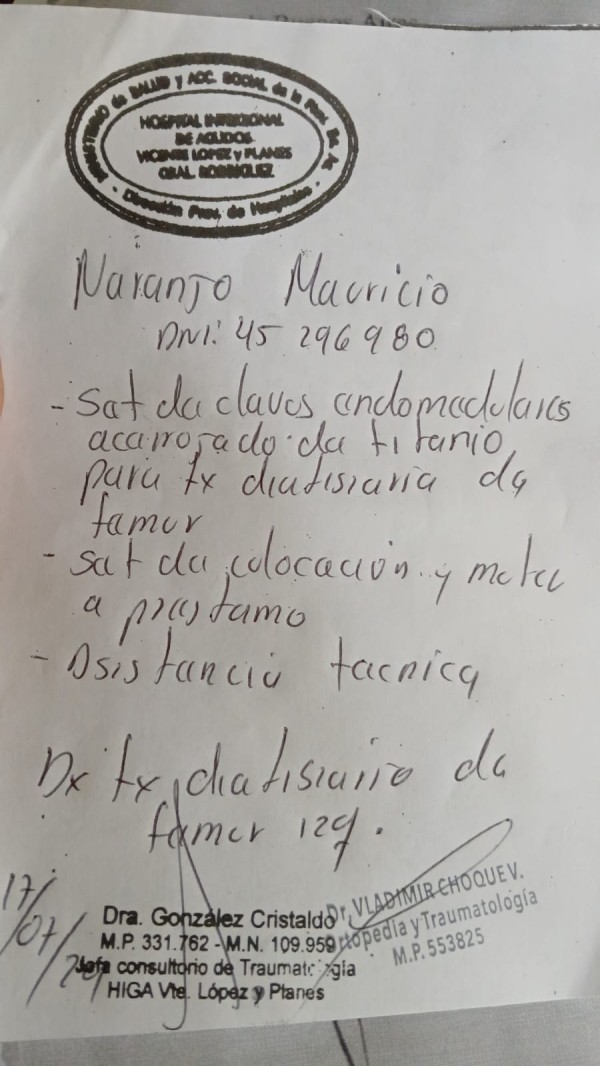 de Buenos Aires
MINISTERIO de SALUD y ACC. SOCIAL de la Prov. Bs. As.
HOSPITAL INTERZONAL
DE AGUDOS
VICENTE LOPEZ y PLANES
GRAL. RODRIGUEZ
- Dirección Prov. de Hospitales -
Naranjo Mauricio
DNI: 45 296 980
- Set de claves endomedulares
acerrojado de titanio
para fx diafisiaria de
femur
- Set de colocación y motor
a prestamo
- Asistencia tecnica
Dx fx diafisiaria de
femur izq.
17/07/
Dra. González Cristaldo
M.P. 331.762 - M.N. 109.959
Jefa consultorio de Traumatología
HIGA Vte. López y Planes
Dr. VLADIMIR CHOQUE V.
Ortopedia y Traumatología
M.P. 553825